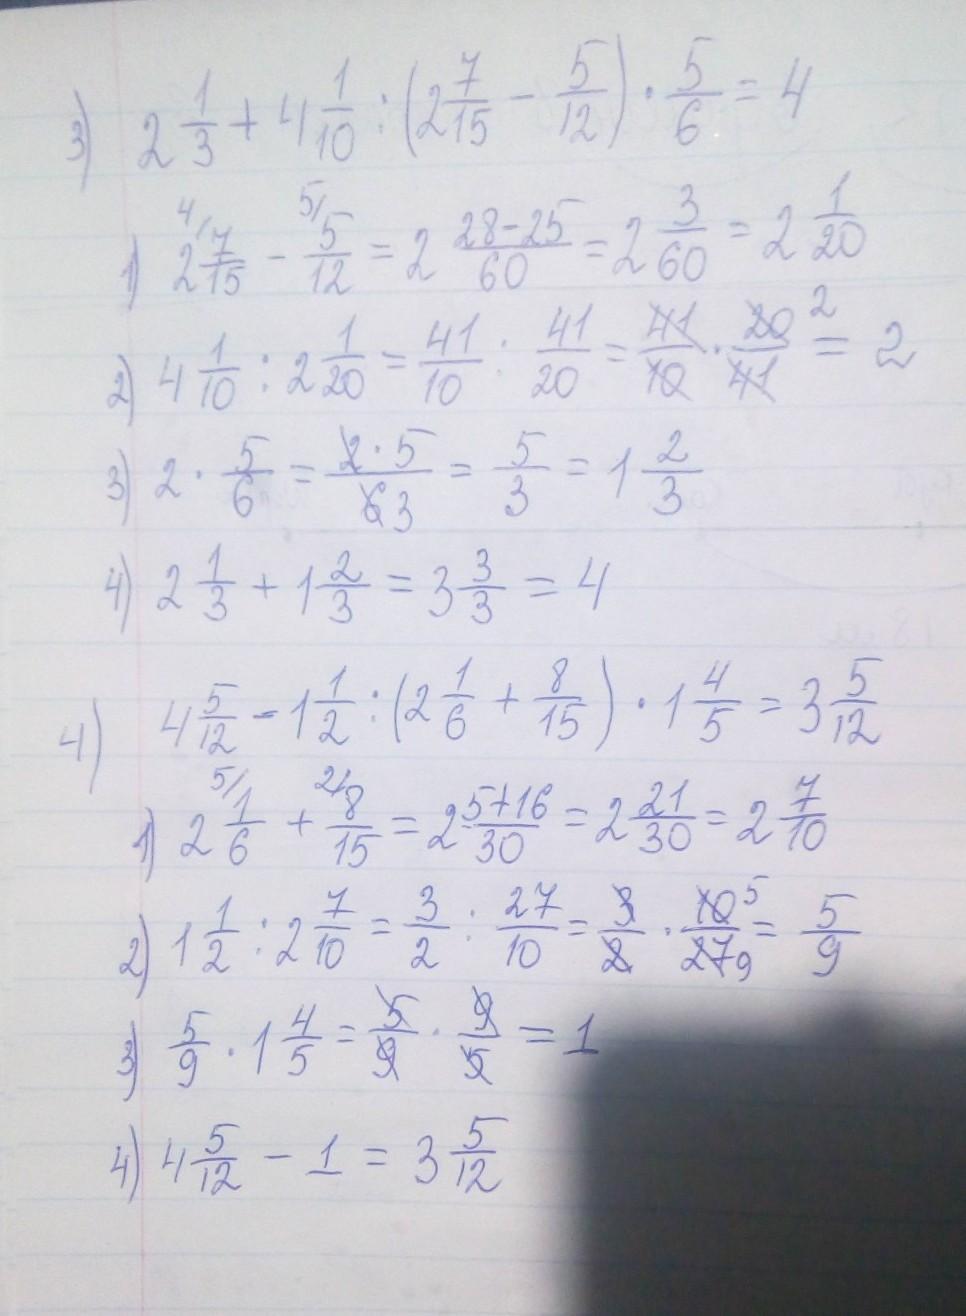 3) 2 1/3 + 4 1/10 : (2 7/15 - 5/12) · 5/6 = 4
1) 2 4/ 7/15 - 5/ 5/12 = 2 28-25/60 = 2 3/60 = 2 1/20
2) 4 1/10 : 2 1/20 = 41/10 : 41/20 = 41/10 · 20 2/41 = 2
3) 2 · 5/6 = 2·5/6 3 = 5/3 = 1 2/3
4) 2 1/3 + 1 2/3 = 3 3/3 = 4
4) 4 5/12 - 1 1/2 : (2 1/6 + 8/15) · 1 4/5 = 3 5/12
1) 2 5/ 1/6 + 2/ 8/15 = 2 5+16/30 = 2 21/30 = 2 7/10
2) 1 1/2 : 2 7/10 = 3/2 : 27/10 = 3/2 · 10 5/27 9 = 5/9
3) 5/9 · 1 4/5 = 5/9 · 9/5 = 1
4) 4 5/12 - 1 = 3 5/12